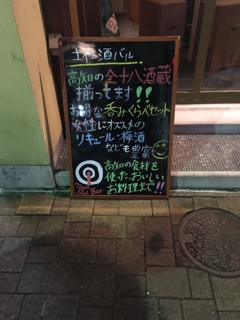 土佐酒バル
高知の全十八酒蔵
揃ってます!!
お得な呑みくらべセット
女性にオススメの
リキュール・梅酒
なども豊富
高知の食材を
使ったおいしい
お料理まで!!
Tosa
Sake Bar